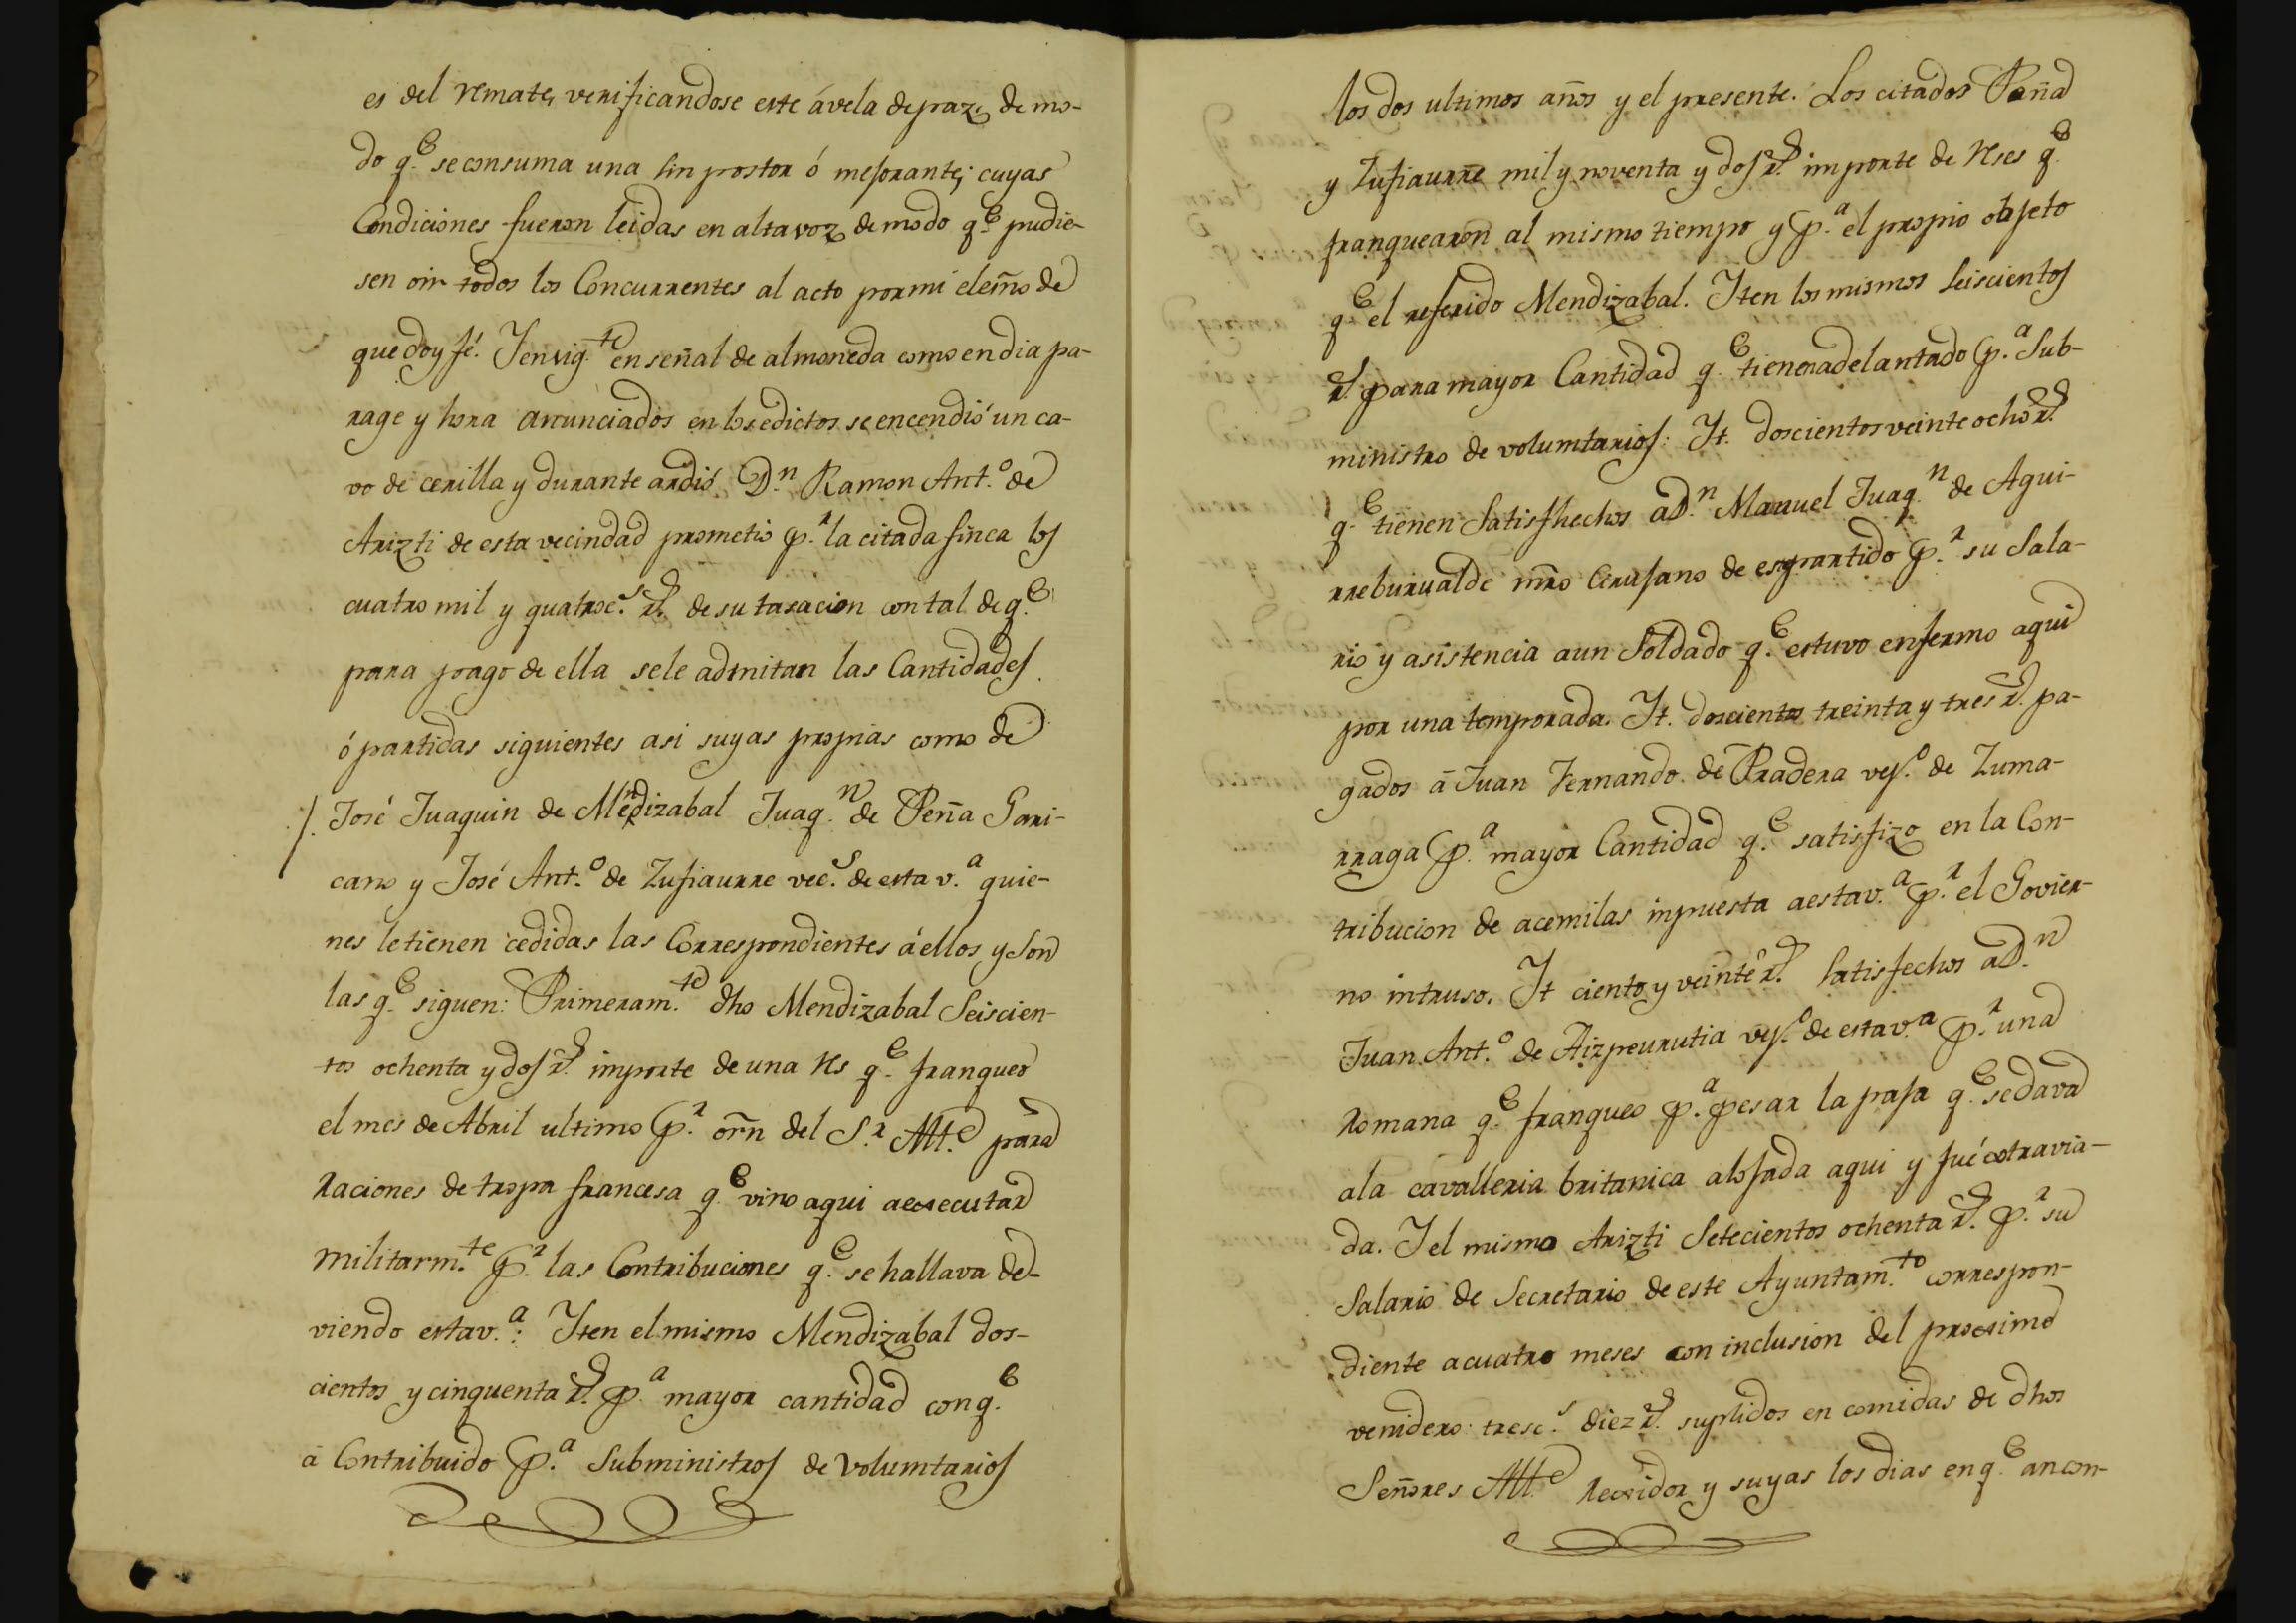 es del remate, verificandose este ávela de paz, de mo-
do q.e se consuma una sin postor ó mejorante; cuyas
Condiciones fueron leidas en alta voz de modo q.e pudie-
sen oir todos los Concurrentes al acto por mi el esño de
que doy fé. Y en vig.te en señal de almoneda como en dia pa-
rage y hora anunciados en los edictos se encendió un ca-
vo de cerilla y durante ardió D.n Ramon Ant.o de
Arizti de esta vecindad prometio p.r la citada finca los
cuatro mil y quatroc.s r.s de su tasacion con tal de q.e
para pago de ella se le admitan las Cantidades
ó partidas siguientes asi suyas propias como de
/. José Juaquin de Mendizabal Juaq.n de Peña Gari-
cano y José Ant.o de Zufiaurre vec.s de esta v.a quie-
nes le tienen cedidas las Correspondientes á ellos y son
las q.e siguen: Primeram.te dho Mendizabal Seiscien-
tos ochenta y dos r.s importe de una res q.e franqueo
el mes de Abril ultimo p.r orn del S.r Alt.e para
Raciones de tropa francesa q.e vino aqui a execcutar
militarm.te p.r las Contribuciones q.e se hallava de-
viendo esta v.a: Iten el mismo Mendizabal dos-
cientos y cinquenta r.s p.a mayor cantidad con q.e
a Contribuido p.a Subministros de Volumtarios
los dos ultimos años y el presente. Los citados Peña
y Zufiaurre mil y noventa y dos r.s importe de reses q.e
franquearon al mismo tiempo y p.a el propio objeto
q.e el referido Mendizabal. Iten los mismos Seiscientos
r.s para mayor Cantidad q.e tienen adelantado p.a Sub-
ministro de volumtarios: It. doscientos veinte ocho r.s
q.e tienen Satisfhechos a D.n Manuel Juaq.n de Agui-
rreburualde mro Cirujano de este partido p.r su Sala-
rio y asistencia a un Soldado q.e estuvo enfermo aqui
por una temporada. It. doscientos treinta y tres r.s pa-
gados á Juan Fernando de Pradera vez.o de Zuma-
rraga p.a mayor Cantidad q.e satisfizo en la Con-
tribucion de acemilas inpuesta a esta v.a p.r el Govier-
no intruso. It ciento y veinte r.s Satisfechos a D.n
Juan Ant.o de Aizpeurutia vez.o de esta v.a p.r una
Romana q.e franqueo p.a pesar la paja q.e se dava
a la cavalleria britanica alojada aqui y fué extravia-
da. Y el mismo Arizti Setecientos ochenta r.s p.r su
Salario de Secretario de este Ayuntam.to correspon-
diente a cuatro meses con inclusion del proximo
venidero: tresc.s diez r.s suplidos en comidas de dhos
Señores Alt.e Rexidor y suyas los dias en q.e an con-